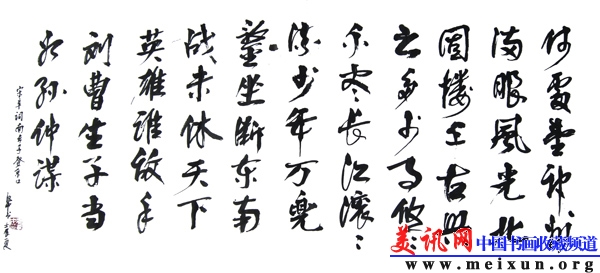 何處望神州
满眼風光北
固楼千古興
亡多少事悠々
不尽长江滚々
流少年万兜
鍪坐断东南
战未休天下
英雄谁敌手
刘曹生子当
如孙仲谋
宋辛词南乡子登京口
美讯网
中国书画收藏频道
www.meixun.org